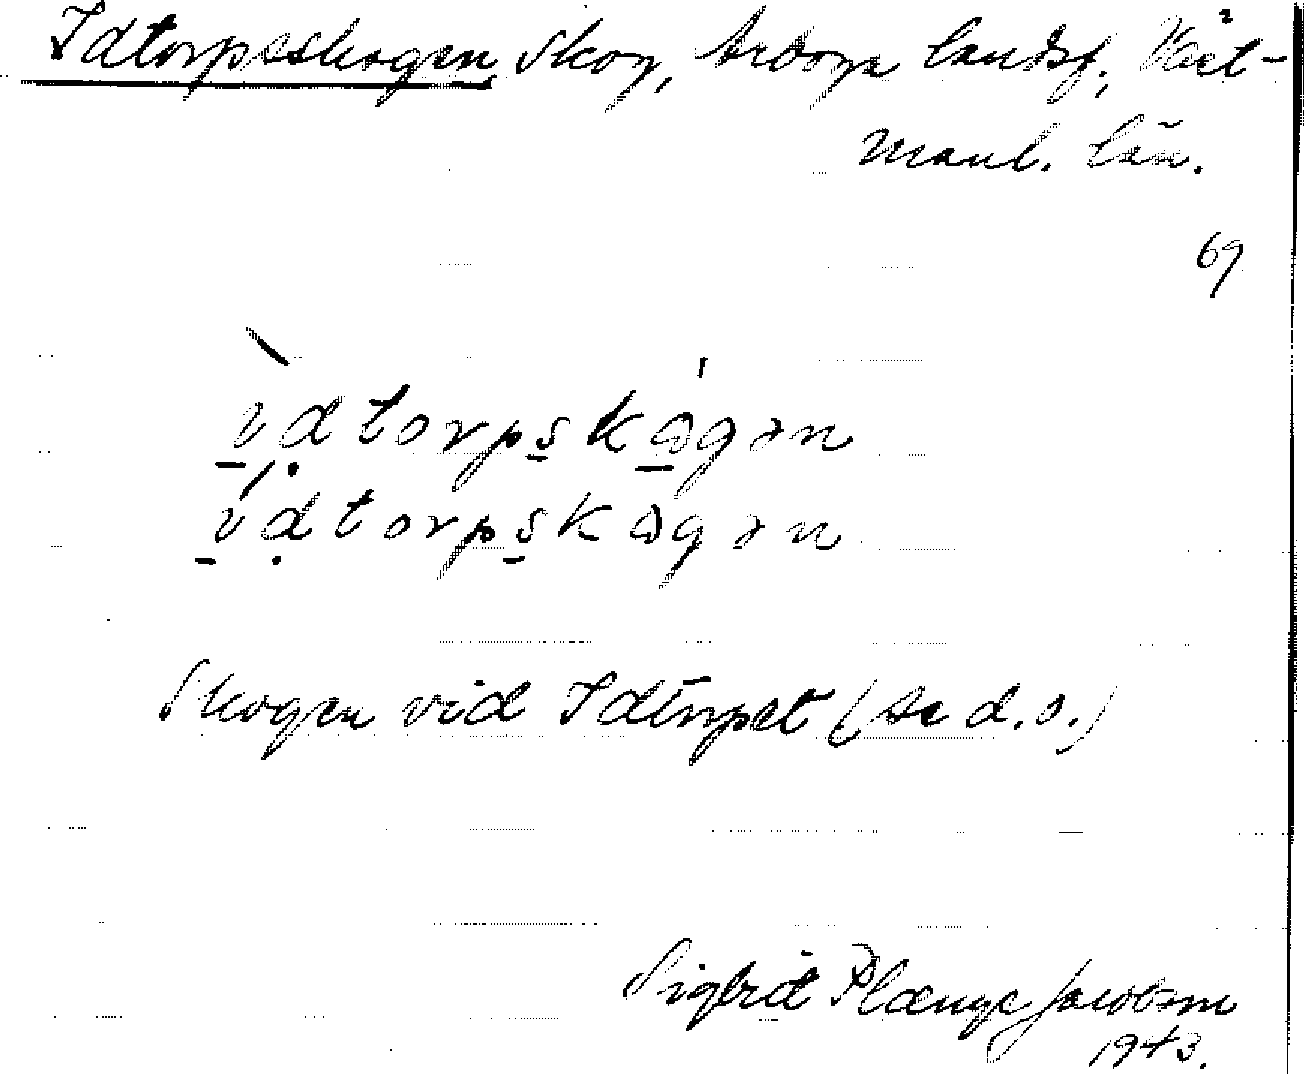 Idtorpsskogen, Skog, Arboga landsf., Väst-
manl. län.
69
ìdtorpskågən
ídtorpskågən
Skogen vid Idtorpet (se d.o.)
Sigbrit Plænge Jacobson
1943.